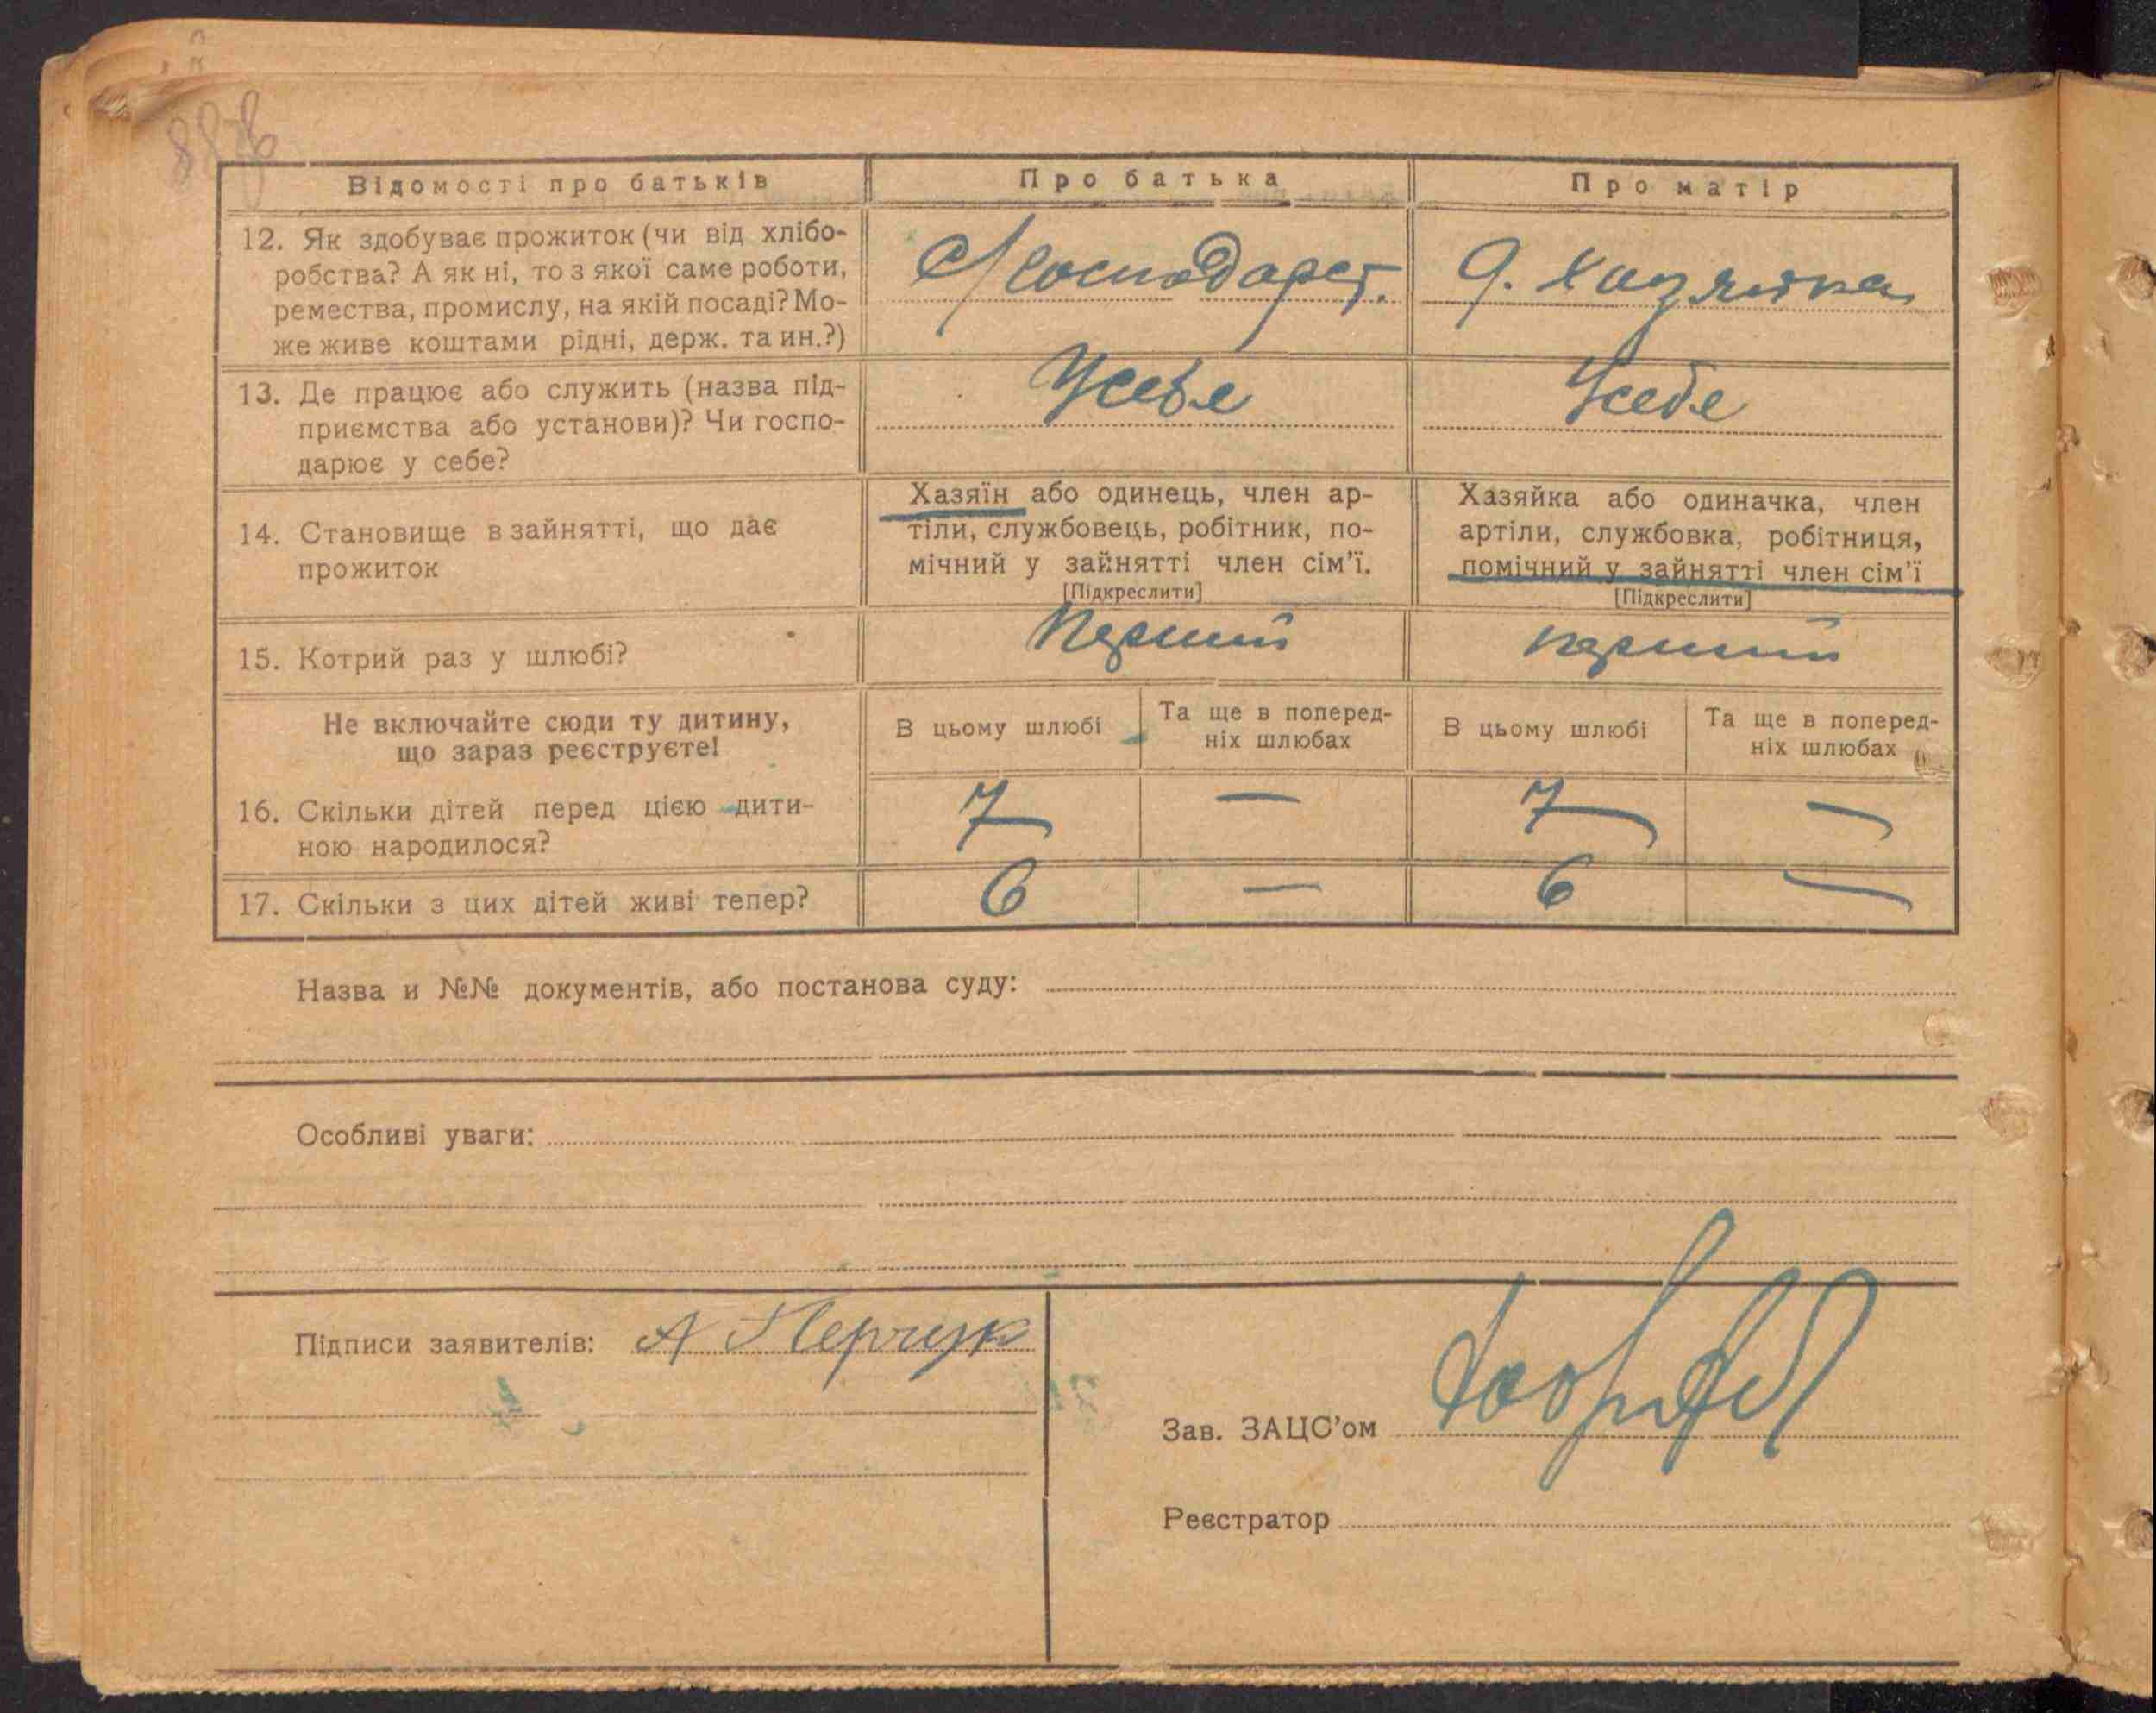 Відомості про батьків
Про батька
Про матір
12. Як здобуває прожиток (чи від хлібо-
робства? А як ні, то з якої саме роботи,
ремества, промислу, на якій посаді? Мо-
же живе коштами рідні, держ. та ин.?)
С/Господарст.
Д. Хазяйка
13. Де працює або служить (назва під-
приємства або установи)? Чи госпо-
дарює у себе?
Усебе
Усебе
14. Становище в зайнятті, що дає
прожиток
Хазяїн або одинець, член ар-
тіли, службовець, робітник, по-
мічний у зайнятті член сім'ї.
[Підкреслити]
Хазяйка або одиначка, член
артіли, службовка, робітниця,
помічний у зайнятті член сім'ї
[Підкреслити]
15. Котрий раз у шлюбі?
Перший
перший
Не включайте сюди ту дитину,
що зараз реєструєте!
В цьому шлюбі
Та ще в поперед-
ніх шлюбах
В цьому шлюбі
Та ще в поперед-
ніх шлюбах
16. Скільки дітей перед цією дити-
ною народилося?
7
—
7
—
17. Скільки з цих дітей живі тепер?
6
—
6
—
Назва и №№ документів, або постанова суду:
Особливі уваги:
Підписи заявителів:
А
Зав. ЗАЦС'ом
Реєстратор